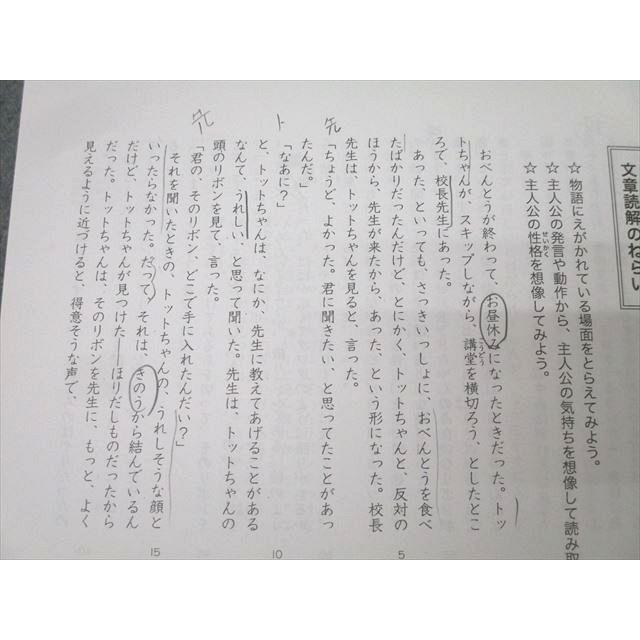 文章読解のねらい
☆ 物語にえがかれている場面をとらえてみよう。
☆ 主人公の発言や動作から、主人公の気持ちを想像して読み取
☆ 主人公の性格を想像してみよう。
せいかく
おべんとうが終わって、お昼休みになったときだった。トッ
トちゃんが、スキップしながら、講堂を横切ろう、としたとこ
こうどう
ろで、校長先生にあった。
あった、といっても、さっきいっしょに、おべんとうを食べ
たばかりだったんだけど、とにかく、トットちゃんと、反対の
ほうから、先生が来たから、あった、という形になった。校長
先生は、トットちゃんを見ると、言った。
「ちょうど、よかった。君に聞きたい、と思ってたことがあっ
たんだ。」
「なあに?」
と、トットちゃんは、なにか、先生に教えてあげることがある
なんて、うれしい、と思って聞いた。先生は、トットちゃんの
頭のリボンを見て、言った。
「君の、そのリボン、どこで手に入れたんだい?」
それを聞いたときの、トットちゃんの、うれしそうな顔と
いったらなかった。だって、それは、きのうから結んでいるん
だけど、トットちゃんが見つけた――ほりだしものだったから
だった。トットちゃんは、そのリボンを先生に、もっと、よく
見えるように近づけると、得意そうな声で、
先
ト
先
5
10
15